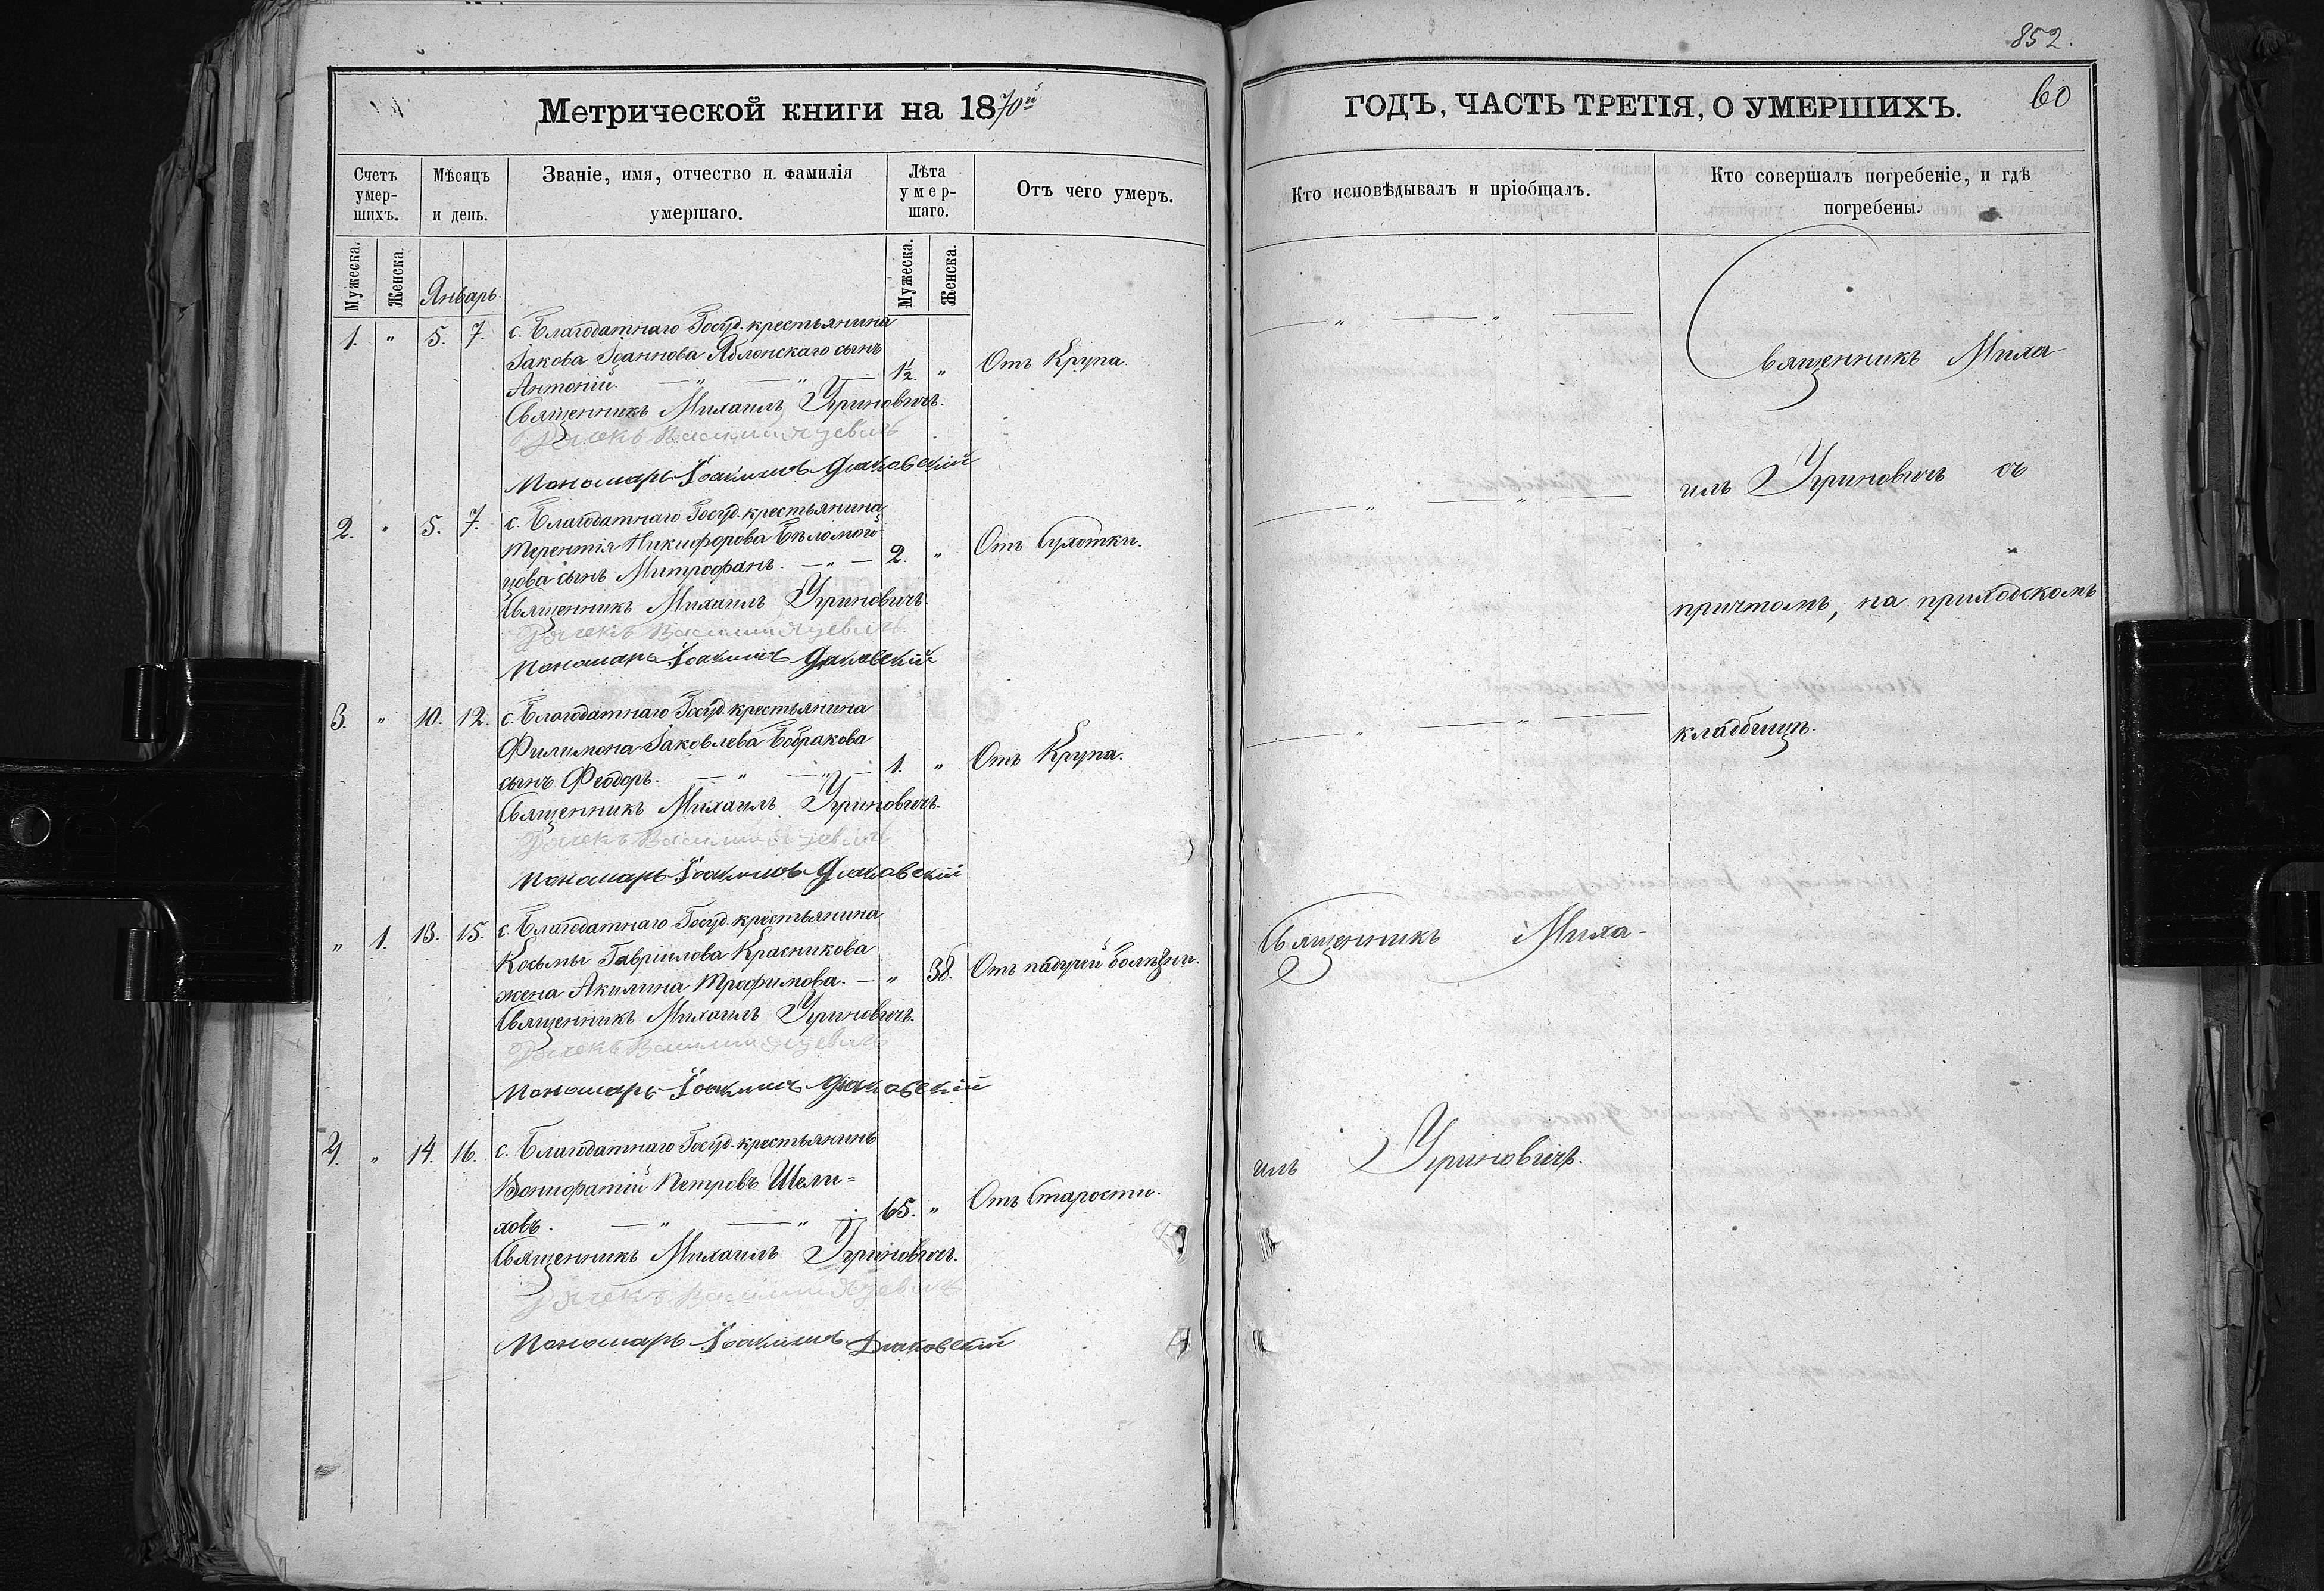 852.
Метрической книги на 1870й
ГОДЪ, ЧАСТЬ ТРЕТІЯ, О УМЕРШИХЪ.
60
Счетъ умер-шихъ.
Мѣсяцъ и день.
Званіе, имя, отчество и фамилія умершаго.
Лѣта умер-шаго.
Отъ чего умеръ.
Кто исповѣдывалъ и пріобщалъ.
Кто совершалъ погребеніе, и гдѣ погребены.
Мужеска. Женска.
Январь.
Мужеска. Женска.
1. " 5. 7. с. Благодатнаго Госуд. крестьянина
Іакова Іоаннова Яблонскаго сынъ
Антоній. — " — " — 1½. " Отъ Крупа.
Священникъ Михаилъ Угриновичъ.
Дьячекъ Василій
Пономарь Іоакимъ Дьяковскій
2. " 5. 7. с. Благодатнаго Госуд. крестьянина
Терентія Никифорова Бѣломой-
цова сынъ Митрофанъ. — " — 2. " Отъ Сухотки.
Священникъ Михаилъ Угриновичъ.
Дьячекъ Василій
Пономарь Іоакимъ Дьяковскій
3. " 10. 12. с. Благодатнаго Госуд. крестьянина
Филимона Іаковлева Бобракова
сынъ Феодоръ. — " — " — 1. " Отъ Крупа.
Священникъ Михаилъ Угриновичъ.
Дьячекъ Василій
Пономарь Іоакимъ Дьяковскій
" 1. 13. 15. с. Благодатнаго Госуд. крестьянина
Косьмы Гавріилова Красникова
жена Акилина Трофимова. — " 38. Отъ падучей болѣзни.
Священникъ Михаилъ Угриновичъ.
Дьячекъ Василій
Пономарь Іоакимъ Дьяковскій
4. " 14. 16. с. Благодатнаго Госуд. крестьянинъ
Вонифатій Петровъ Шели=
ховъ. — " — " — 65. " Отъ Старости.
Священникъ Михаилъ Угриновичъ.
Дьячекъ Василій
Пономарь Іоакимъ Дьяковскій
— " — " —
— " — " —
— " — " —
Священникъ Миха-
илъ Угриновичъ.
Священникъ Миха-
илъ Угриновичъ съ
причтомъ, на приходскомъ
кладбищѣ.